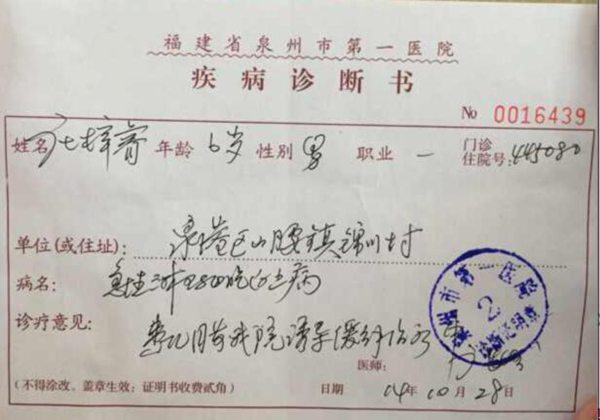 福建省泉州市第一医院
疾病诊断书
No 0016439
姓名 梓 年龄 6岁 性别 男 职业 一 门诊住院号: 445080
单位(或住址): 泉港区山腰镇锦川村
病名: 急性淋巴细胞白血病
诊疗意见: 患儿目前我院诱导缓解治疗
医师:
(不得涂改、盖章生效; 证明书收费贰角) 日期 14年10月28日
泉州市第一医院